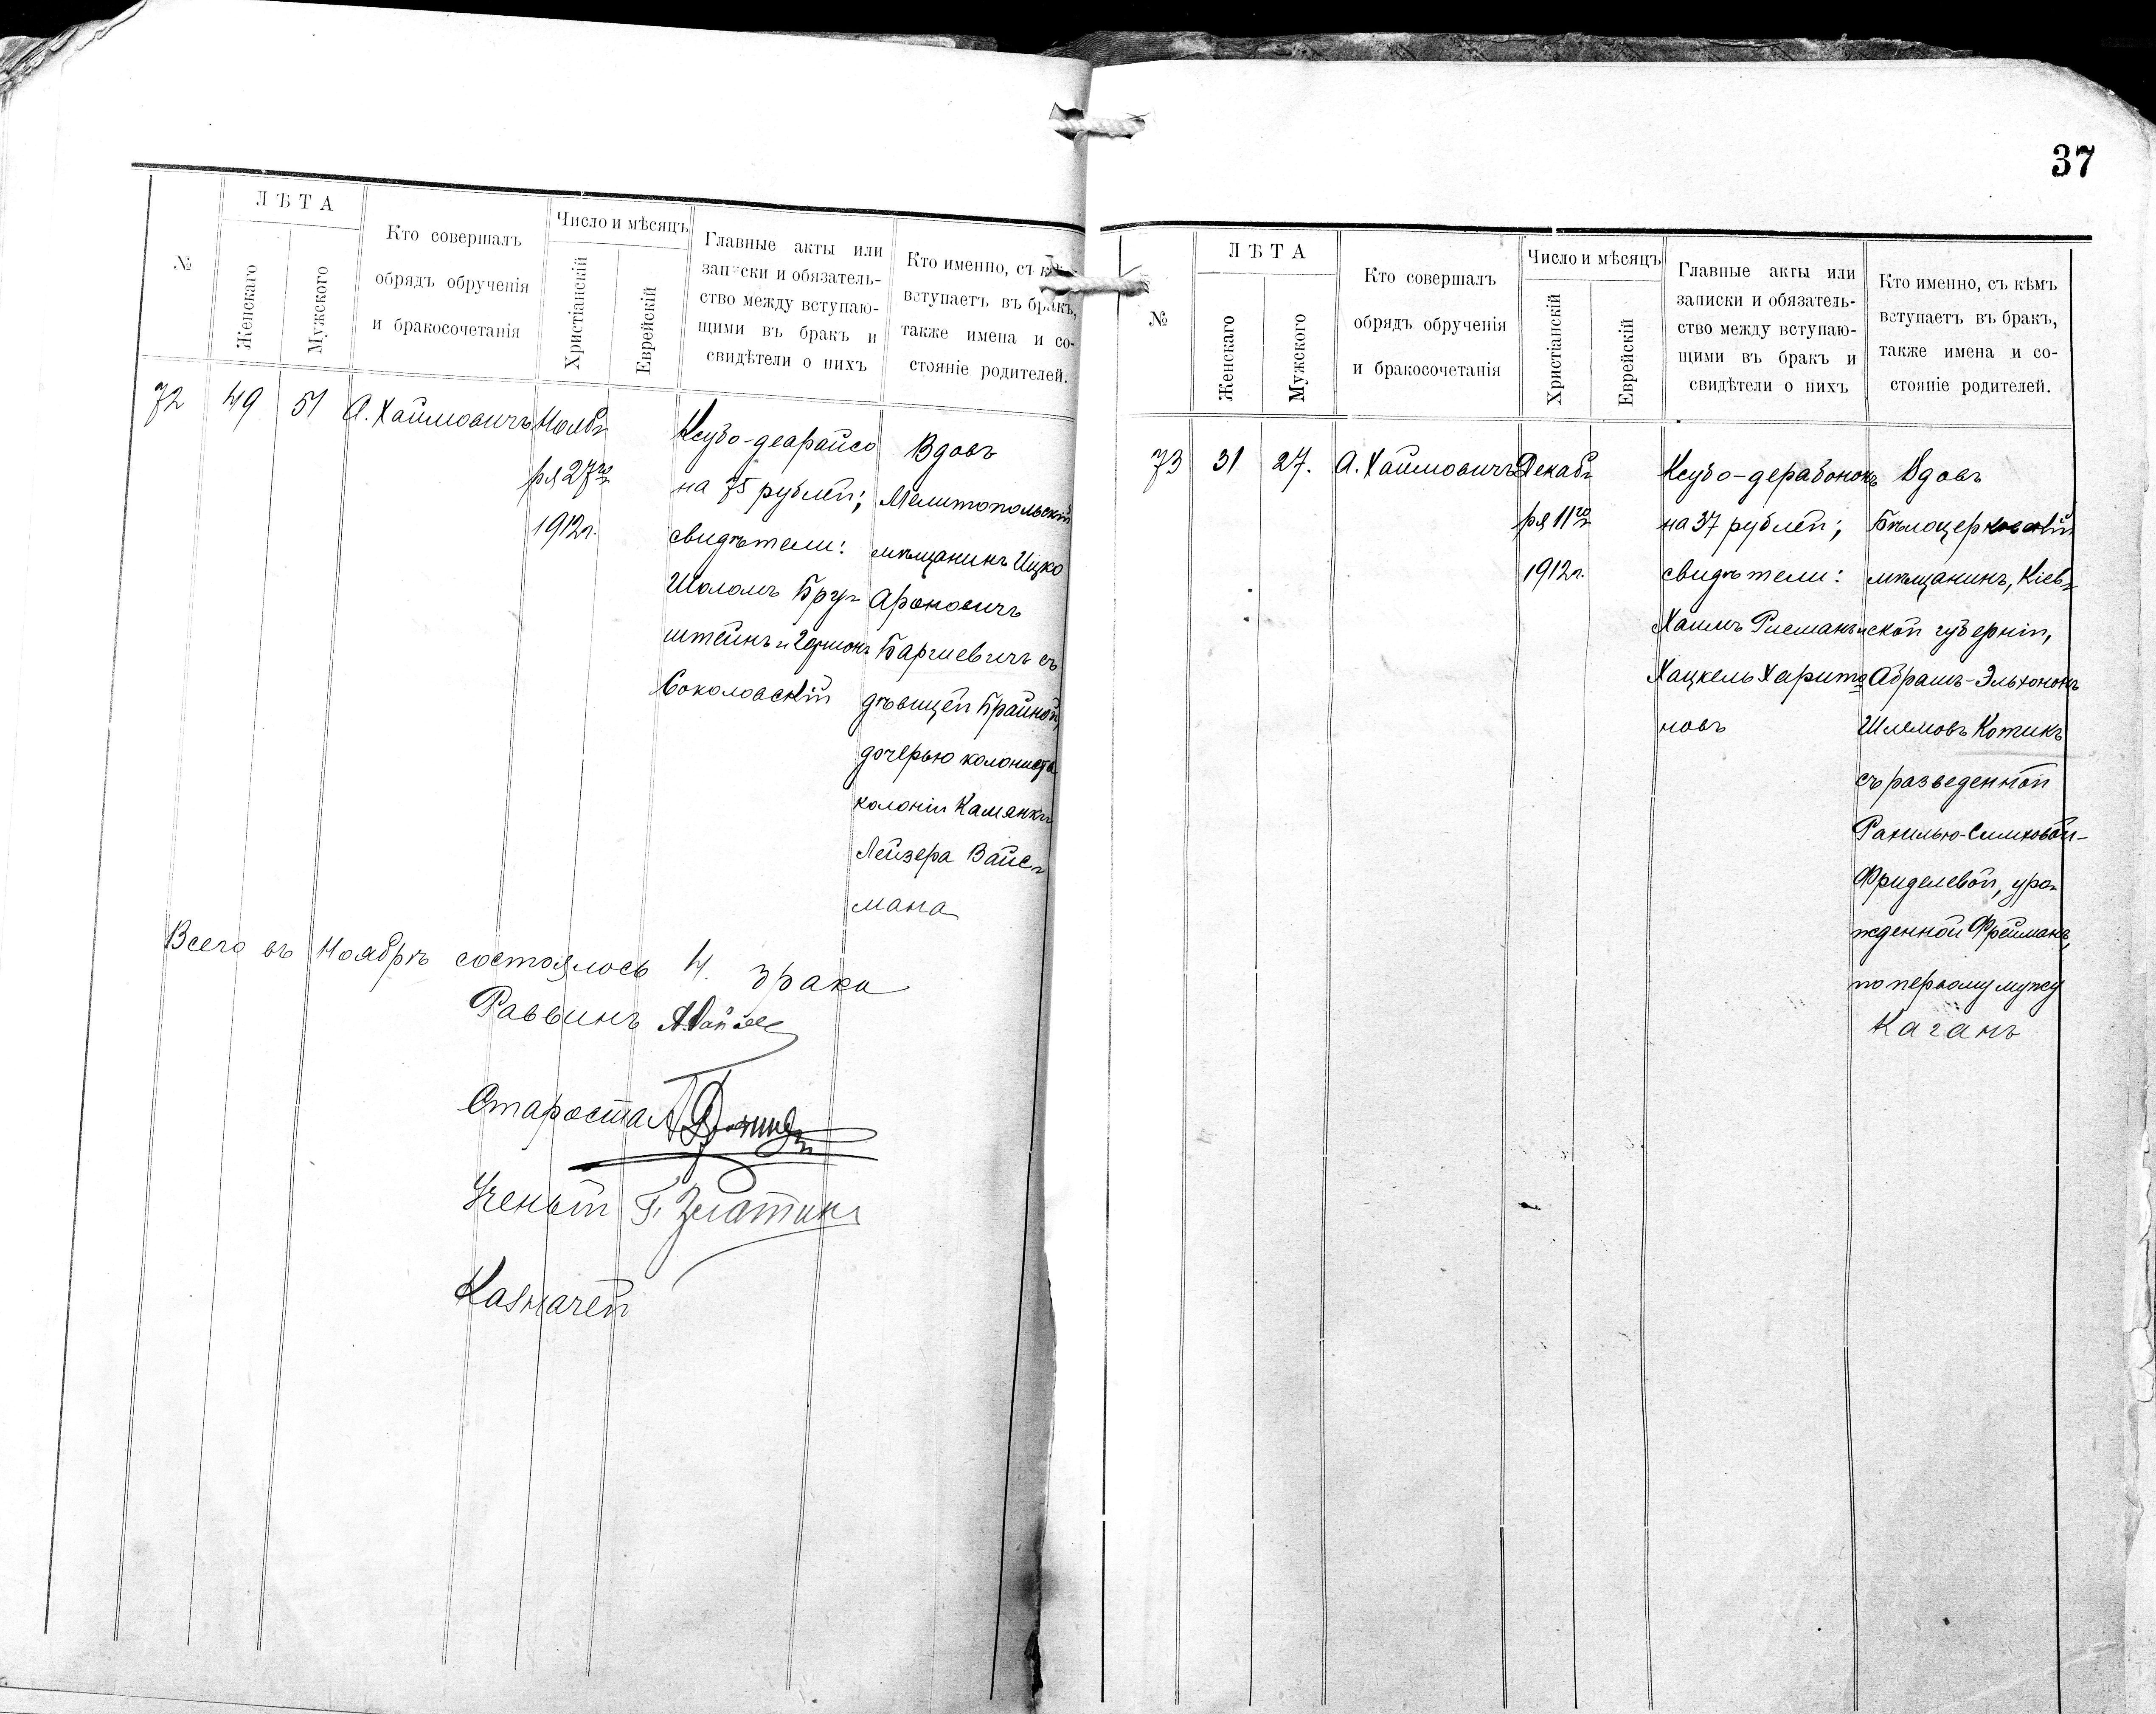 №
ЛѢТА
Женскаго
Мужского
Кто совершалъ
обрядъ обрученія
и бракосочетанія
Число и мѣсяцъ
Христіанскій
Еврейскій
Главные акты или
записки и обязатель-
ство между вступаю-
щими въ бракъ и
свидѣтели о нихъ
Кто именно, съ
вступаетъ въ бракъ,
также имена и со-
стояніе родителей.
72
49
51
А. Хаймовичъ
Нояб-
ря 27го
1912 г.
Ксубо-деарайсо
на 75 рублей;
свидѣтели:
Шоломъ Бру-
штейнъ и
Соколовскій
Вдовъ
Мелитопольскій
мѣщанинъ Ицко
Ароновичъ
Баргиевичъ съ
дѣвицей Брайной,
дочерью колониста
колоніи Камянки
Лейзера Вайс-
мана
Всего въ Ноябрѣ состоялось 4. брака
Раввинъ
Староста
Ученый Г. Златкинъ
Казначей
37
№
ЛѢТА
Женскаго
Мужского
Кто совершалъ
обрядъ обрученія
и бракосочетанія
Число и мѣсяцъ
Христіанскій
Еврейскій
Главные акты или
записки и обязатель-
ство между вступаю-
щими въ бракъ и
свидѣтели о нихъ
Кто именно, съ кѣмъ
вступаетъ въ бракъ,
также имена и со-
стояніе родителей.
73
31
27.
А. Хаймовичъ
Декаб-
ря 11го
1912 г.
Ксубо-дерабононъ
на 37 рублей;
свидѣтели:
Хаимъ Рисманъ и
Хацкель Харито-
новъ
Вдовъ
Бѣлоцерковскій
мѣщанинъ, Кіев-
ской губерніи,
Абрамъ-Эльхононъ
Шлемовъ Котикъ
съ разведенной
Рахилью-Симховой-
Фриделевой, уро-
жденной Фрейманъ,
по первому мужу
Каганъ